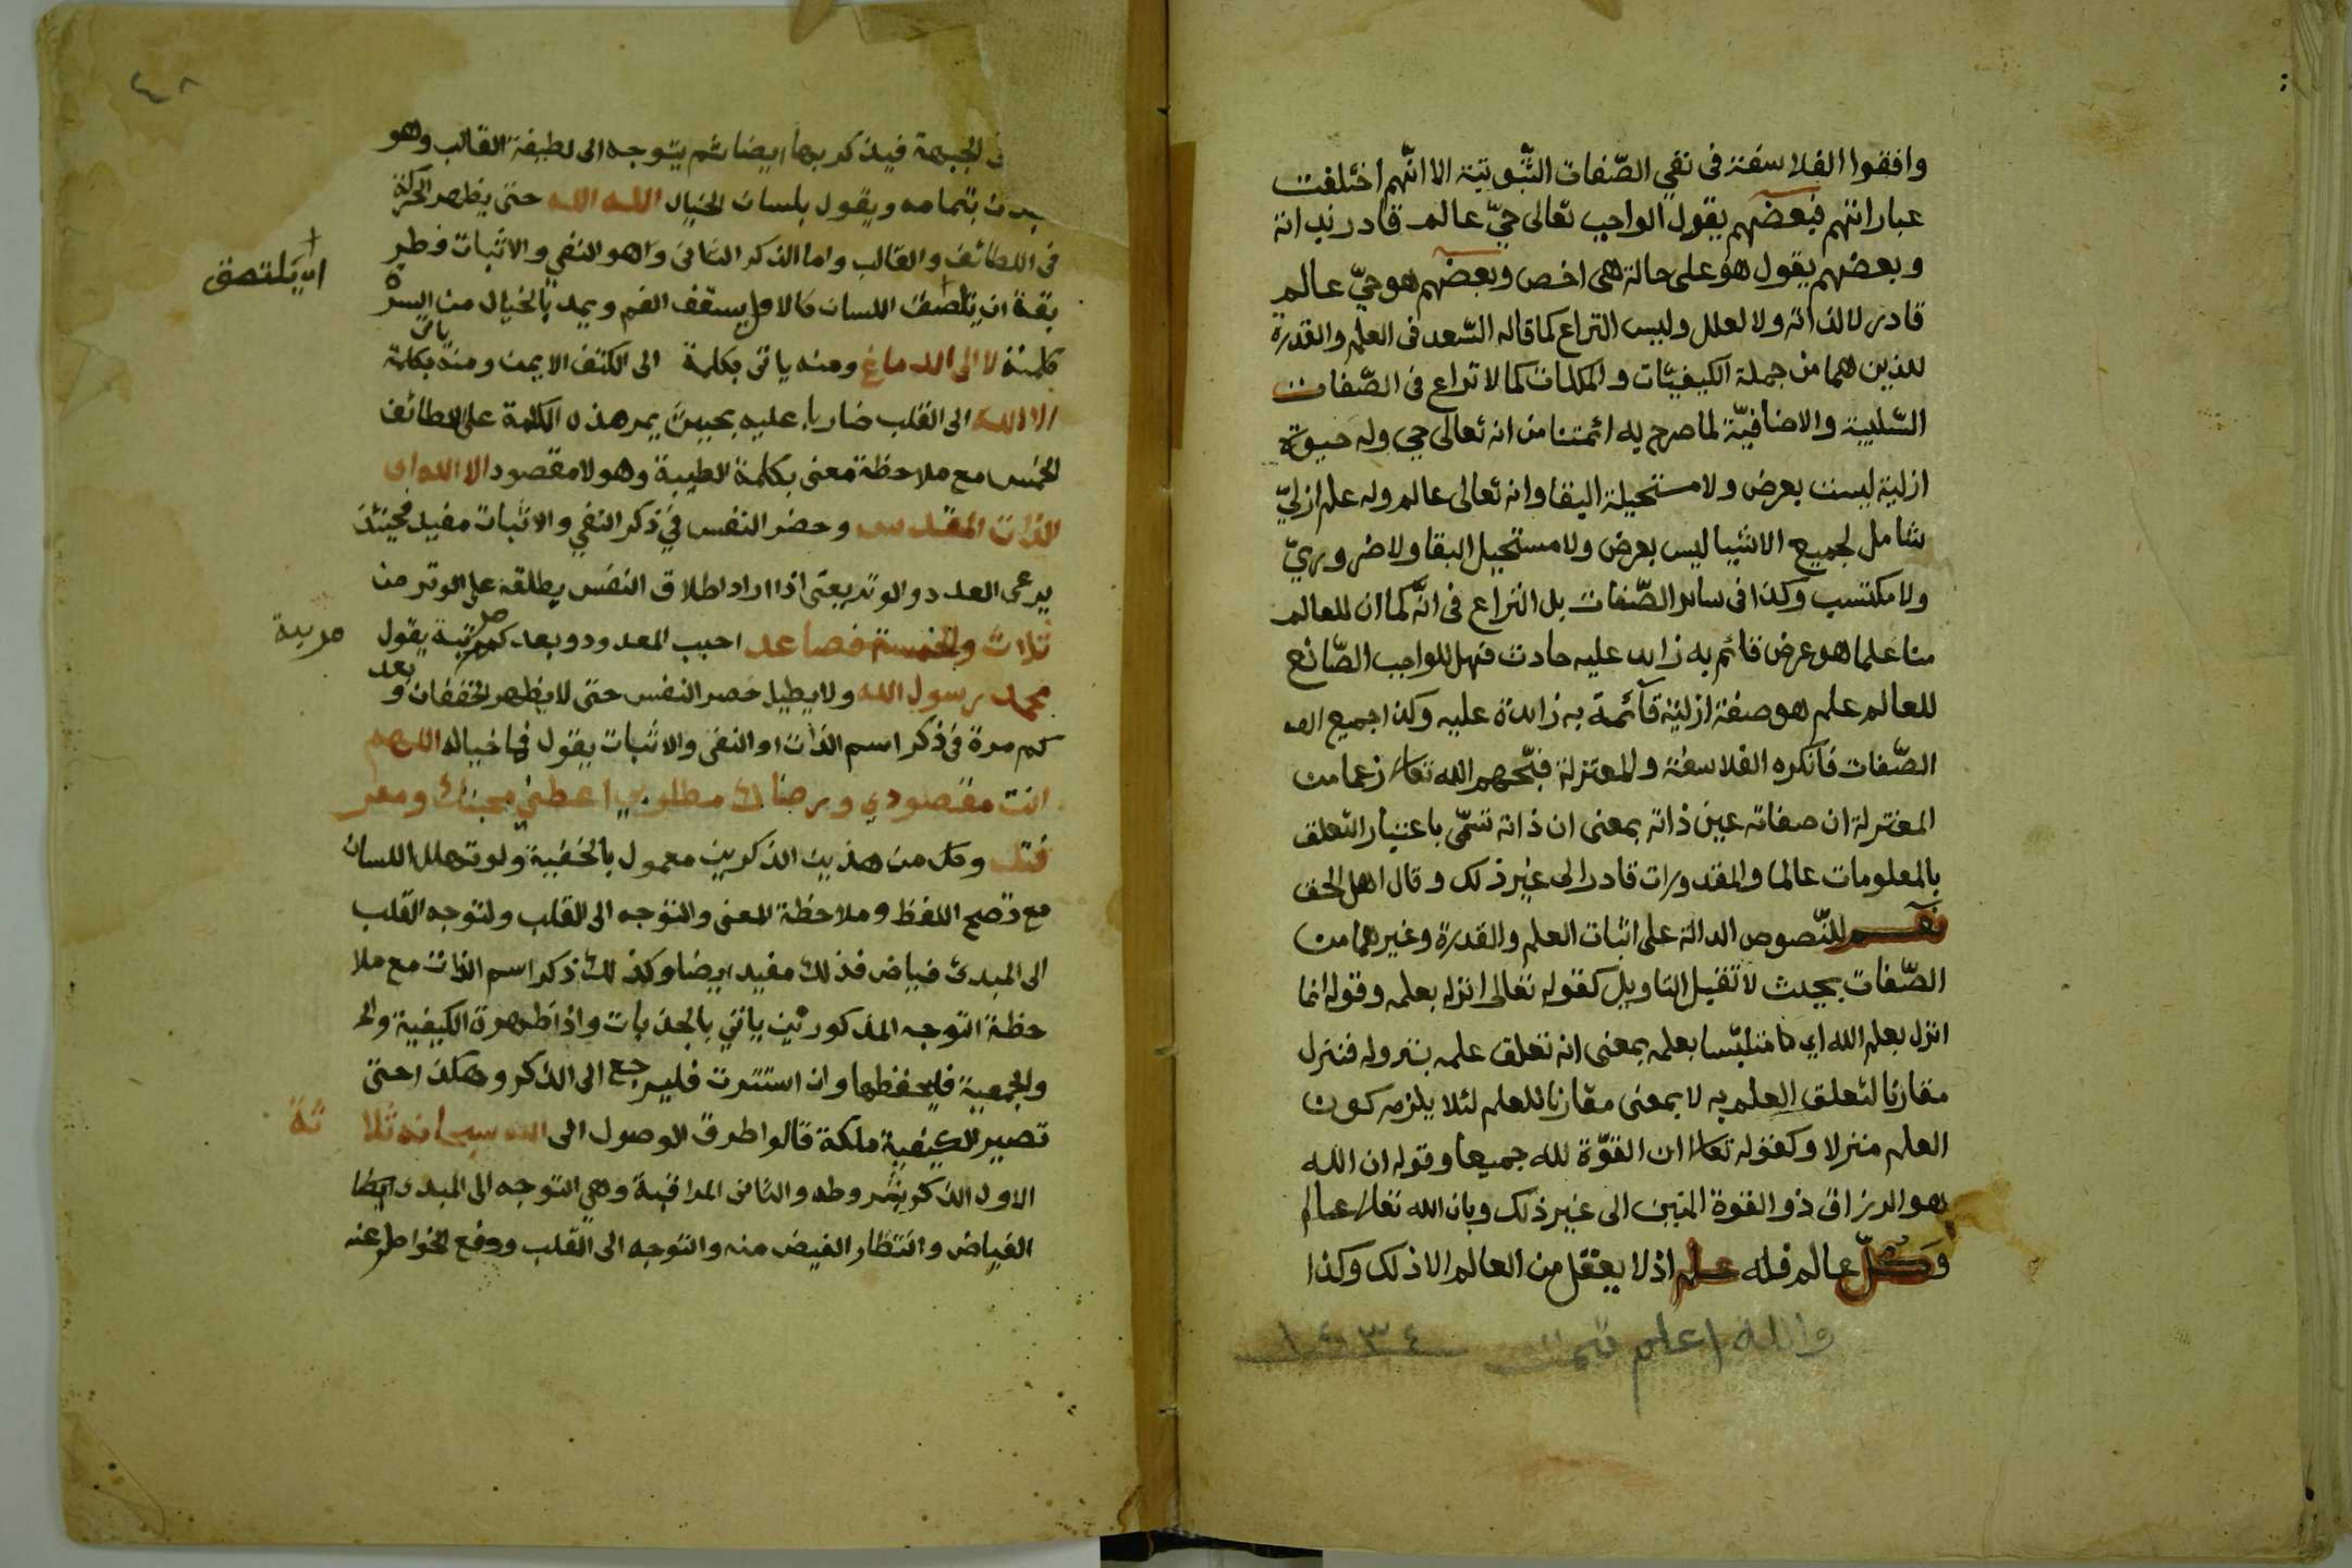 وافقوا الفلاسفة فى نفي الصّفات الثّبوتية الا انّهم اختلفت
عباراتهم فبعضهم يقول الواجب تعالى حيّ عالم قادر لذاته
وبعضهم يقول هو على حالة هى اخص وبعضهم هو حيّ عالم
قادر لا لذاته ولا لعلل وليس النزاع كما قاله السّعد فى العلم والقدرة
للذين هما من جملة الكيفيّات والملكات كما لا نزاع فى الصّفات
السّلبية والاضافيّة لما صرح به ائمتنا من انه تعالى حي وله حيوة
ازلية ليست بعرض ولا مستحيلة البقا وانه تعالى عالم وله علم ازليّ
شامل لجميع الاشيا ليس بعرض ولا مستحيل البقا ولا ضروريّ
ولا مكتسب وكذا فى سائر الصّفات بل النزاع فى انّه كما ان للعالم
منا علما هو عرض قائم به زايد عليه حادث فهل للواجب الصّانع
للعالم علم هو صفة ازلية قائمة به زايدة عليه وكذا جميع
الصّفات فانكره الفلاسفة والمعتزلة قبّحهم الله تعالى زعما من
المعتزلة ان صفاته عين ذاته بمعنى ان ذاته تسمّى باعتبار التعلق
بالمعلومات عالما والمقدورات قادرا الى غير ذلك وقال اهل الحق
نعم للنّصوص الدالة على اثبات العلم والقدرة وغيرهما من
الصّفات بحيث لا تقبل التاويل كقوله تعالى انزله بعلمه وقوله انما
انزل بعلم الله اي متلبّسا بعلمه بمعنى انه تعلق علمه بنزوله فنزل
مقارنا لتعلق العلم به لا بمعنى مقارنا للعلم لئلا يلزم كون
العلم منزلا وكقوله تعالى ان القوّة لله جميعا وقوله ان الله
هو الرزاق ذو القوة المتين الى غير ذلك وبان الله تعالى عالم
وكلّ عالم فله علم اذ لا يعقل من العالم الا ذلك وكذا
والله اعلم تمت ١٤٣٤
٤٨
الجبهة فيذكر بها ايضا ثم يتوجه الى لطيفة القالب وهو
بتمامه ويقول بلسان الخيال الله الله حتى يظهر الحركة
فى اللطائف والقالب واما الذكر الثانى وهو النفي والاثبات فطر
يقة ان يلصق اللسان كالاول بسقف الفم ويمد بالخيال من السرة
اى يلتصق
كلمة لا الى الدماغ ومنه ياتى بكلمة الى الكتف الايمن ومنه ياتى بكلمة
الا الله الى القلب ضاربا عليه بحيث يمر هذه الكلمة على اللطائف
الخمس مع ملاحظة معنى بكلمة الطيبة وهو لا مقصود الا الله اى
الذات المقدس وحضر النفس في ذكر النفي والاثبات مفيد فحينئذ
يرعى العدد والوتر يعنى اذا اراد اطلاق النفس يطلقه على الوتر من
ثلاث والخمسة فصاعد احبب المعدود وبعد كم مرتبة يقول
محمد رسول الله ولا يطيل حصر النفس حتى لا يظهر الخفقان وبعد
كم مرة فى ذكر اسم الذات او النفى والاثبات يقول فى خياله اللهم
انت مقصودي ورضاك مطلوبي اعطني محبتك ومعر
فتك وكل من هذين الذكرين معمول بالخفية ولو تهلل اللسان
مع تصحح اللفظ وملاحظة المعنى والتوجه الى القلب ولتوجه القلب
الى المبدئ فياض فذلك مفيد ايضا وكذلك ذكر اسم الذات مع ملا
حظة التوجه المذكورتين ياتي بالجذبات واذا ظهرة الكيفية
والجمعية فليحفظها وان استترت فليرجع الى الذكر وهكذا حتى
تصير الكيفية ملكة قالوا طرق الوصول الى الله سبحانه ثلا ثة
الاول الذكر بشروطه والثانى المراقبة وهي التوجه الى المبدء ايضا
الفياض وانتظار الفيض منه والتوجه الى القلب ودفع الخواطر عنه